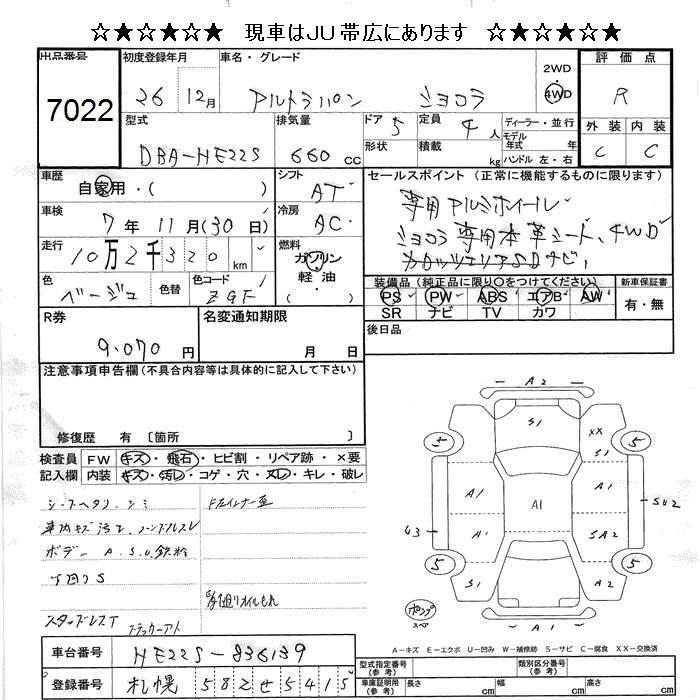 ☆★☆★☆★ 現車はJU帯広にあります ☆★☆★☆★
出品番号 初度登録年月 車名・グレード 2WD 4WD 評価点
7022 26 12月 アルトラパン ショコラ R
型式 排気量 ドア 定員 ディーラー・並行 外装 内装
DBA-HE22S 660 cc 5 4 人 モデル年式 年 C C
形状 積載 kg ハンドル 左・右
車歴 シフト セールスポイント(正常に機能するものに限ります)
自家用・( ) AT
専用アルミホイール
車検 冷房
7年 11月(30日) AC
ショコラ専用本革シート、4WD
走行 燃料
10万2千320 km ガソリン 軽・油 ( )
カロッツェリアSDナビ
色 色替 色コード 装備品(純正品に限り○をつけてください) 新車保証書
ベージュ ZGF PS PW ABS エアB AW 有・無
SR ナビ TV カワ
R券 名変通知期限 後日品
9,070 円 月 日
注意事項申告欄(不具合内容等は具体的に記入して下さい)
修復歴 有 〔箇所 〕
検査員記入欄 FW キズ・飛石・ヒビ割・リペア跡・×要
内装 キズ・汚レ・コゲ・穴・スレ・キレ・破レ
シートヘタリ、シミ
車内キズ汚レ
ボデー A.S.U.鉄粉
下回りS
スタッドレスT
A2
S1 XX
5 S1 5
A1 A1 A1 SU2
U3 A1 SA2
5 S1 A2 5
A1
A-キズ E-エクボ U-凹み W-補修跡 S-サビ C-腐食 XX-交換済
車台番号 HE22S-836139 型式指定番号(参考) 類別区分番号(参考)
登録番号 札幌 582せ5415 車庫証明用(参考) 長さ cm 幅 cm 高さ cm